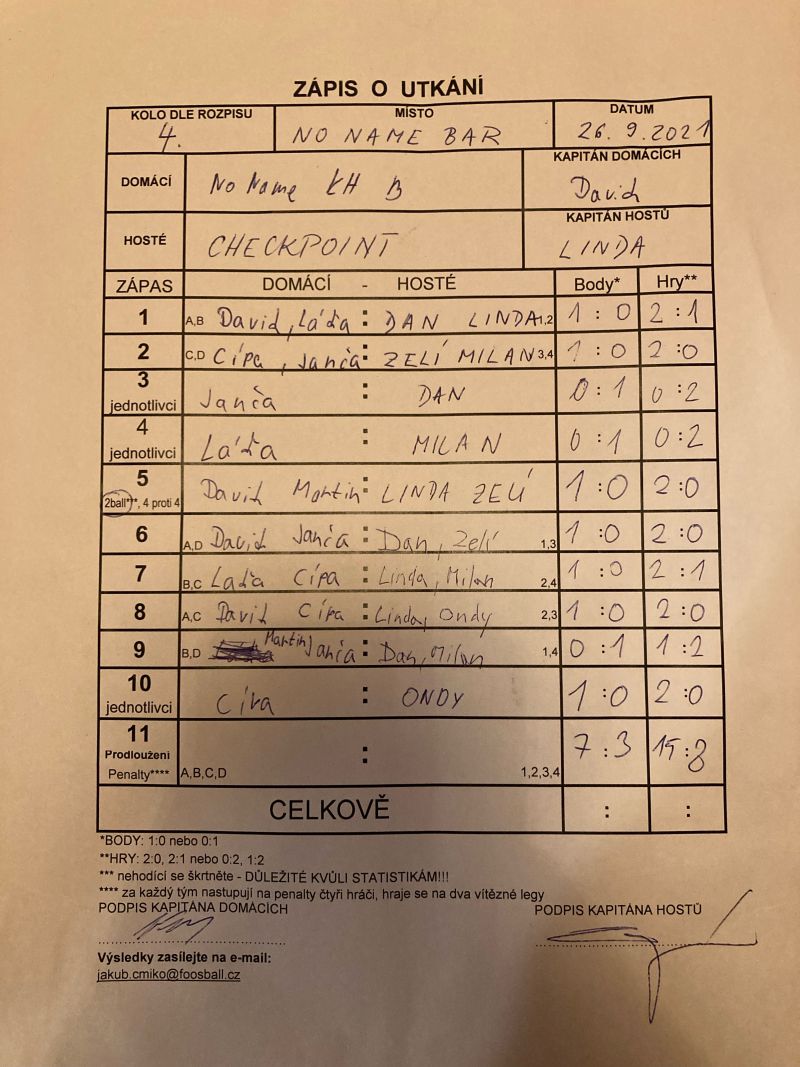 ZÁPIS O UTKÁNÍ
KOLO DLE ROZPISU MÍSTO DATUM
4. NO NAME BAR 26.9.2021
DOMÁCÍ No Name KH B KAPITÁN DOMÁCÍCH David
HOSTÉ CHECKPOINT KAPITÁN HOSTŮ LINDA
ZÁPAS DOMÁCÍ - HOSTÉ Body* Hry**
1 A,B David, Láďa : DAN LINDA 1,2 1 : 0 2 : 1
2 C,D Cípa, Janča : ZELÍ MILAN 3,4 1 : 0 2 : 0
3 jednotlivci Janča : DAN 0 : 1 0 : 2
4 jednotlivci Láďa : MILAN 0 : 1 0 : 2
5 2ball***, 4 proti 4 David Martin : LINDA ZELÍ 1 : 0 2 : 0
6 A,D David Janča : Dan, Zelí 1,3 1 : 0 2 : 0
7 B,C Laďa Cípa : Linda, Milan 2,4 1 : 0 2 : 1
8 A,C David Cípa : Linda, Ondy 2,3 1 : 0 2 : 0
9 B,D Martin Janča : Dan, Milan 1,4 0 : 1 1 : 2
10 jednotlivci Cípa : ONDY 1 : 0 2 : 0
11 Prodloužení Penalty**** A,B,C,D : 1,2,3,4 7 : 3 15 : 8
CELKOVĚ : :
*BODY: 1:0 nebo 0:1
**HRY: 2:0, 2:1 nebo 0:2, 1:2
*** nehodící se škrtněte - DŮLEŽITÉ KVŮLI STATISTIKÁM!!!
**** za každý tým nastupují na penalty čtyři hráči, hraje se na dva vítězné legy
PODPIS KAPITÁNA DOMÁCÍCH PODPIS KAPITÁNA HOSTŮ
Výsledky zasílejte na e-mail:
jakub.cmiko@foosball.cz